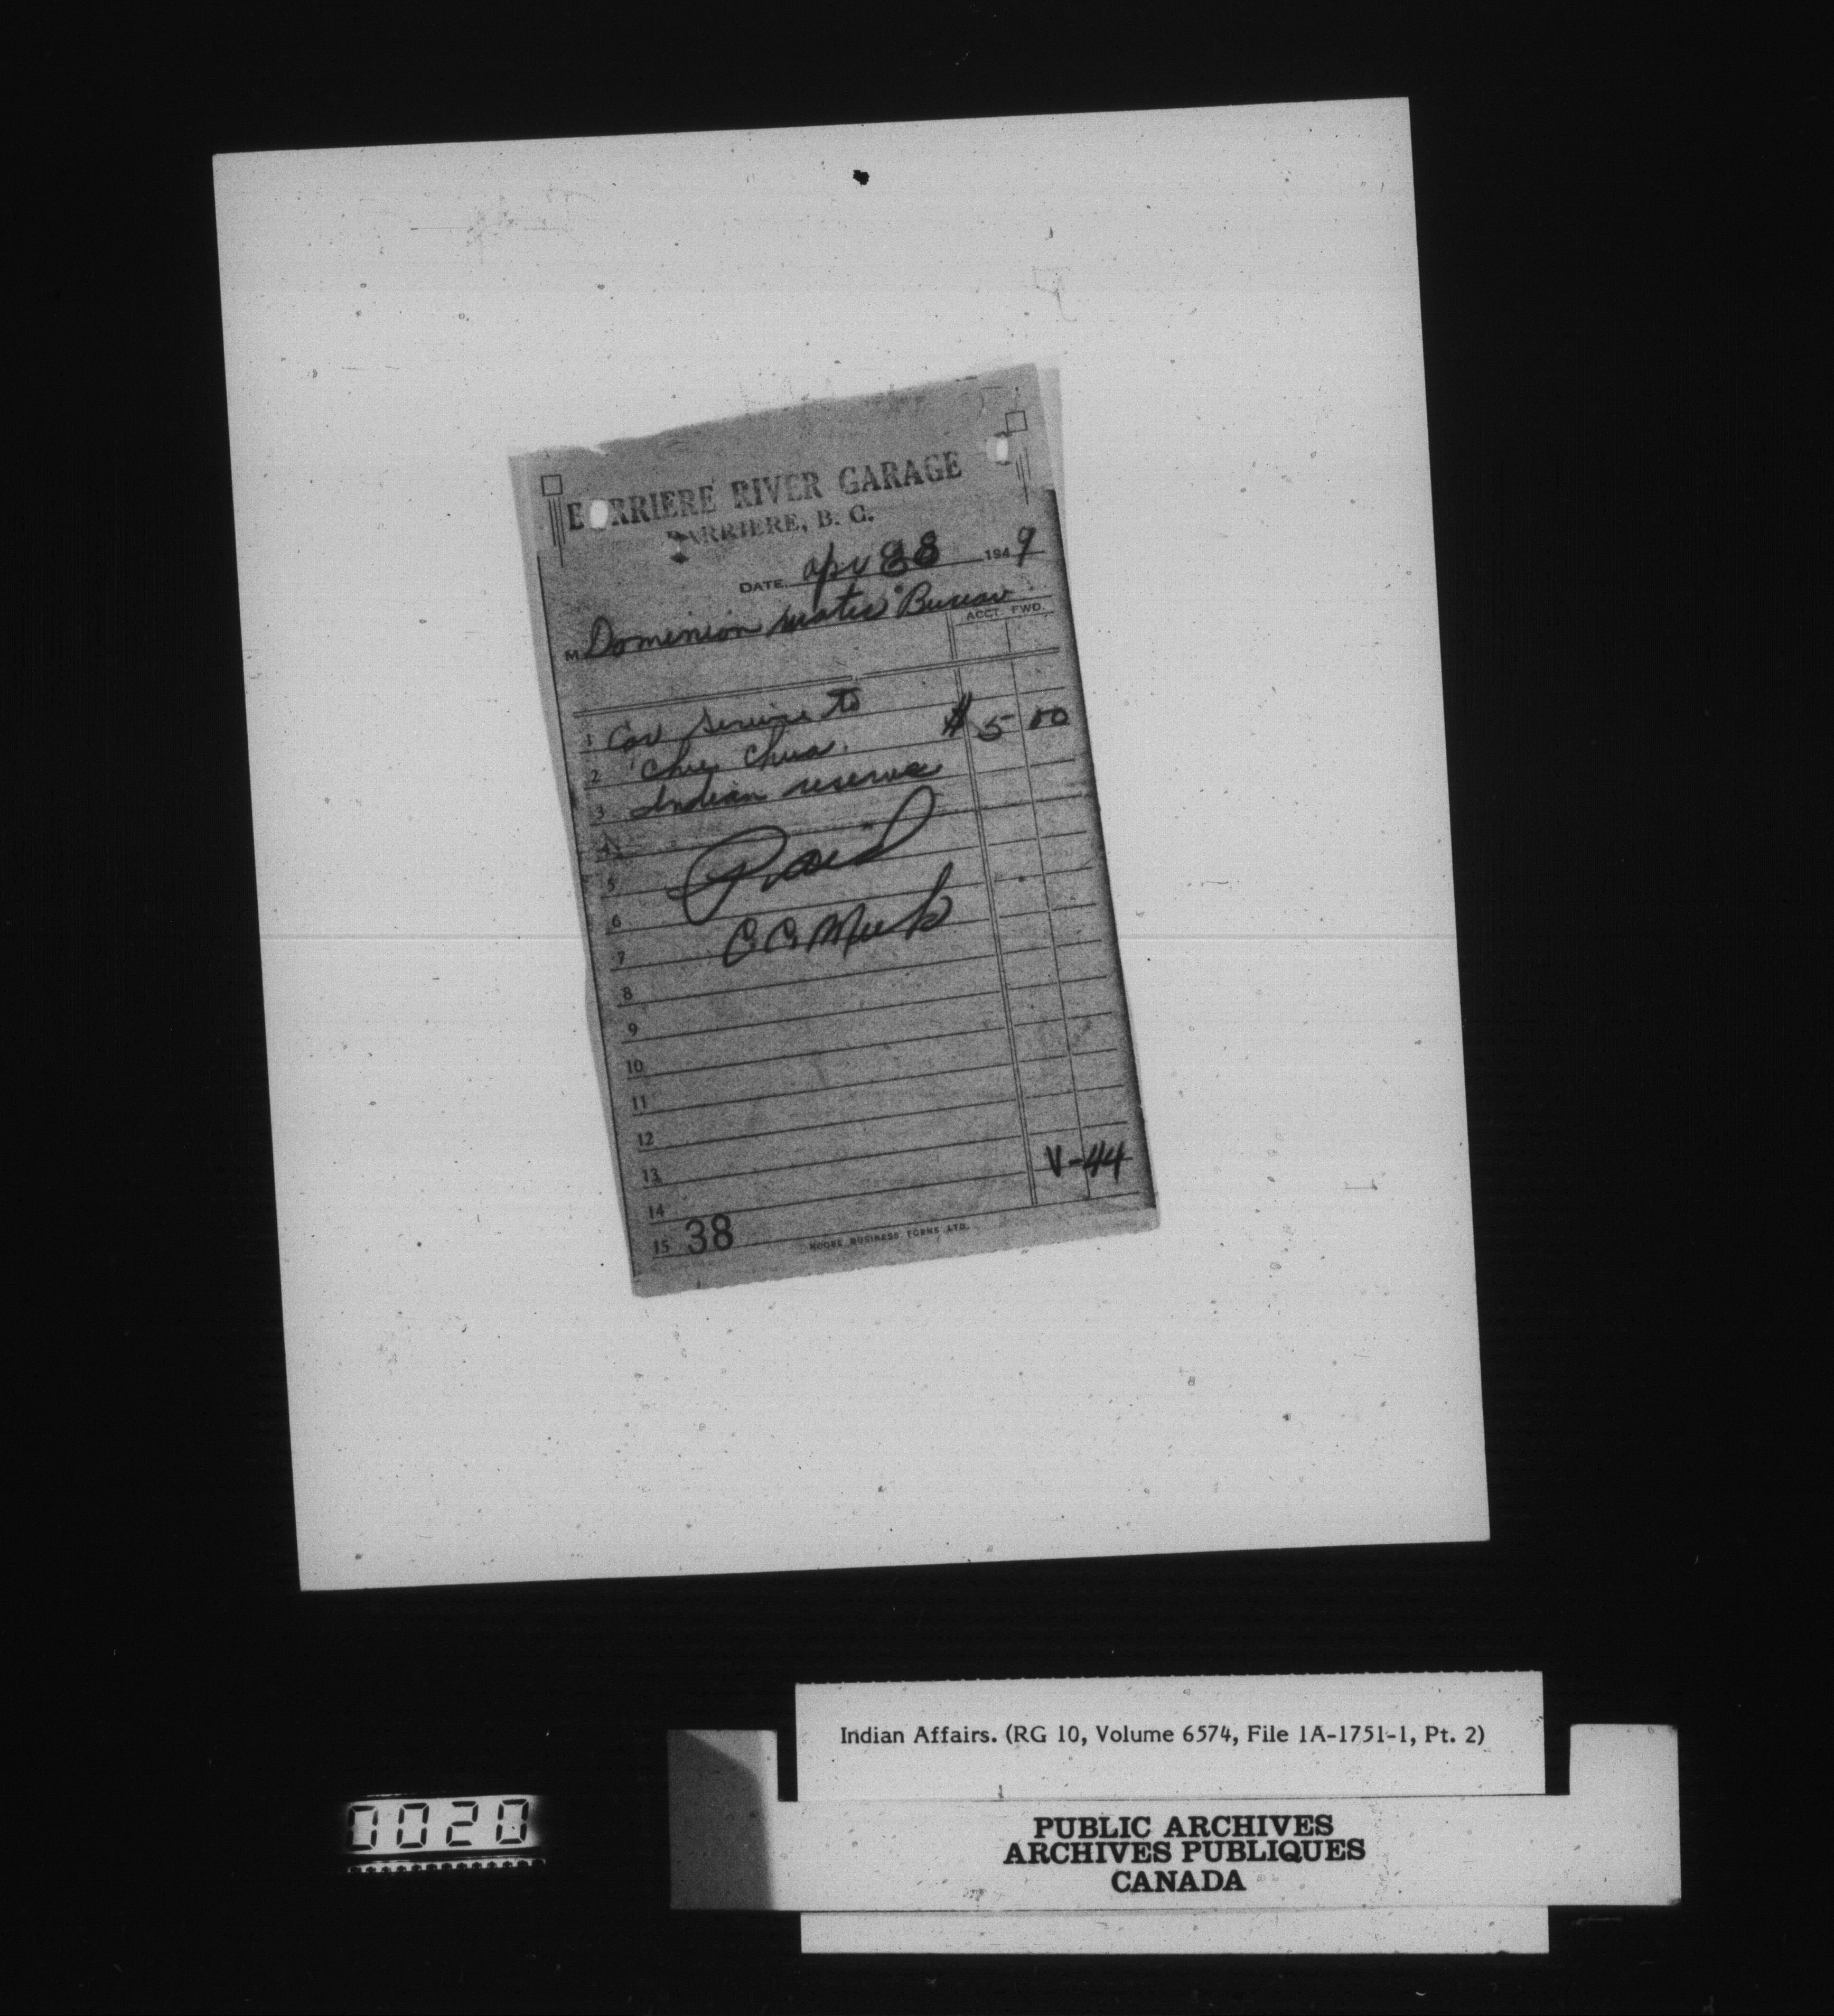 BARRIERE RIVER GARAGE
BARRIERE, B. C.
DATE Apr 28 1949
M Dominion Water Bureau
ACCT. FWD.
1 Car Service to
2 Chu Chua. $5 00
3 Indian reserve
4
5 Paid
6
7 C C Meek
8
9
10
11
12
13
V-44
14
15 38
MOORE BUSINESS FORMS LTD.
Indian Affairs. (RG 10, Volume 6574, File 1A-1751-1, Pt. 2)
0020
PUBLIC ARCHIVES
ARCHIVES PUBLIQUES
CANADA